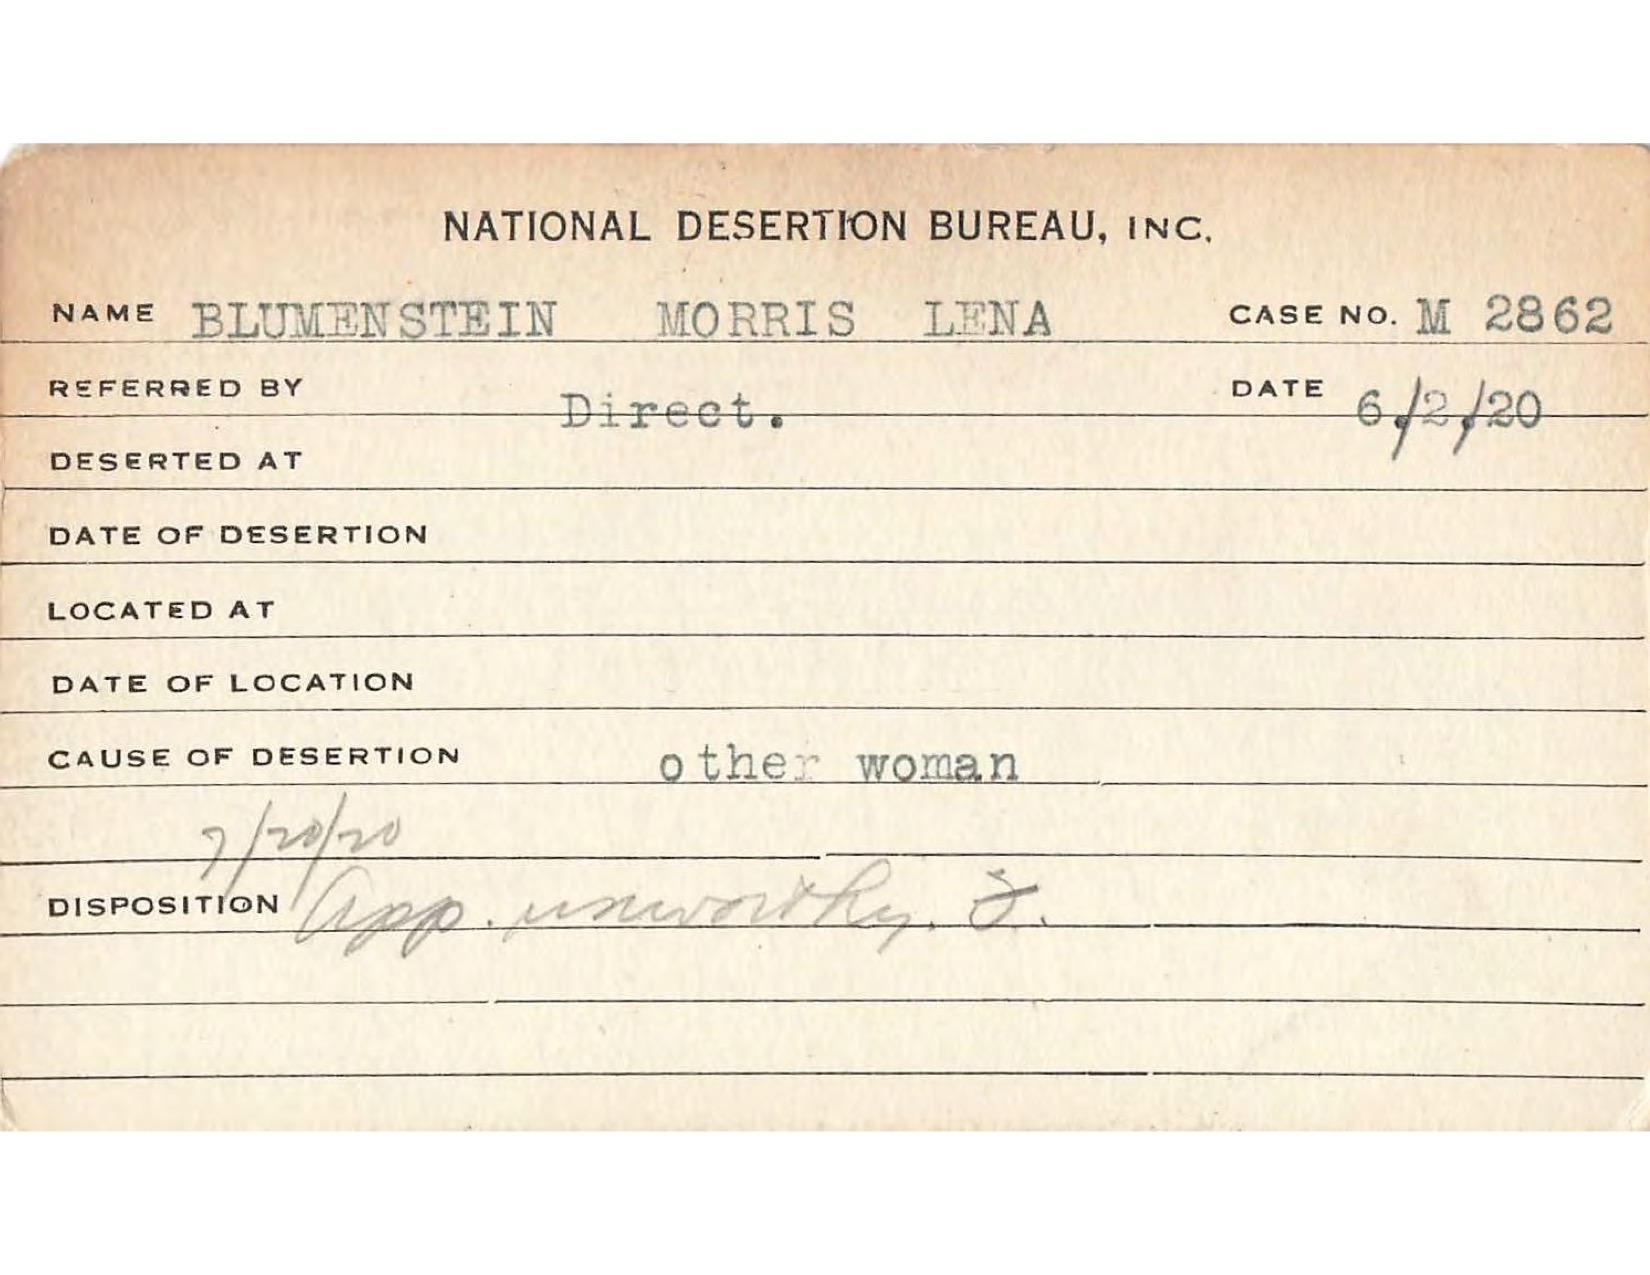 NATIONAL DESERTION BUREAU, INC.
NAME BLUMENSTEIN MORRIS LENA CASE NO. M 2862
REFERRED BY Direct. DATE 6/2/20
DESERTED AT
DATE OF DESERTION
LOCATED AT
DATE OF LOCATION
CAUSE OF DESERTION other woman
7/20/20
DISPOSITION App. unworthy.